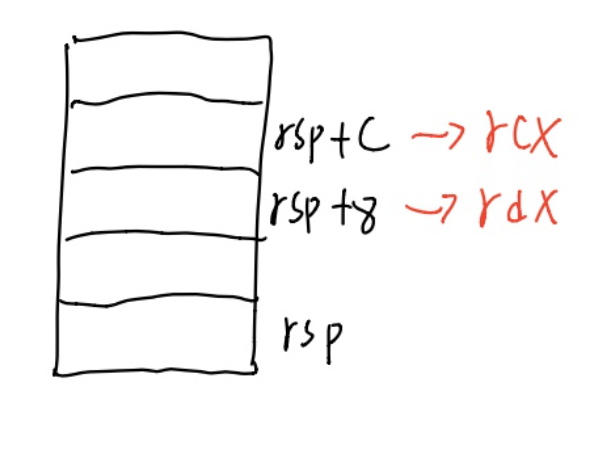 rsp+C → rcx
rsp+8 → rdx
rsp